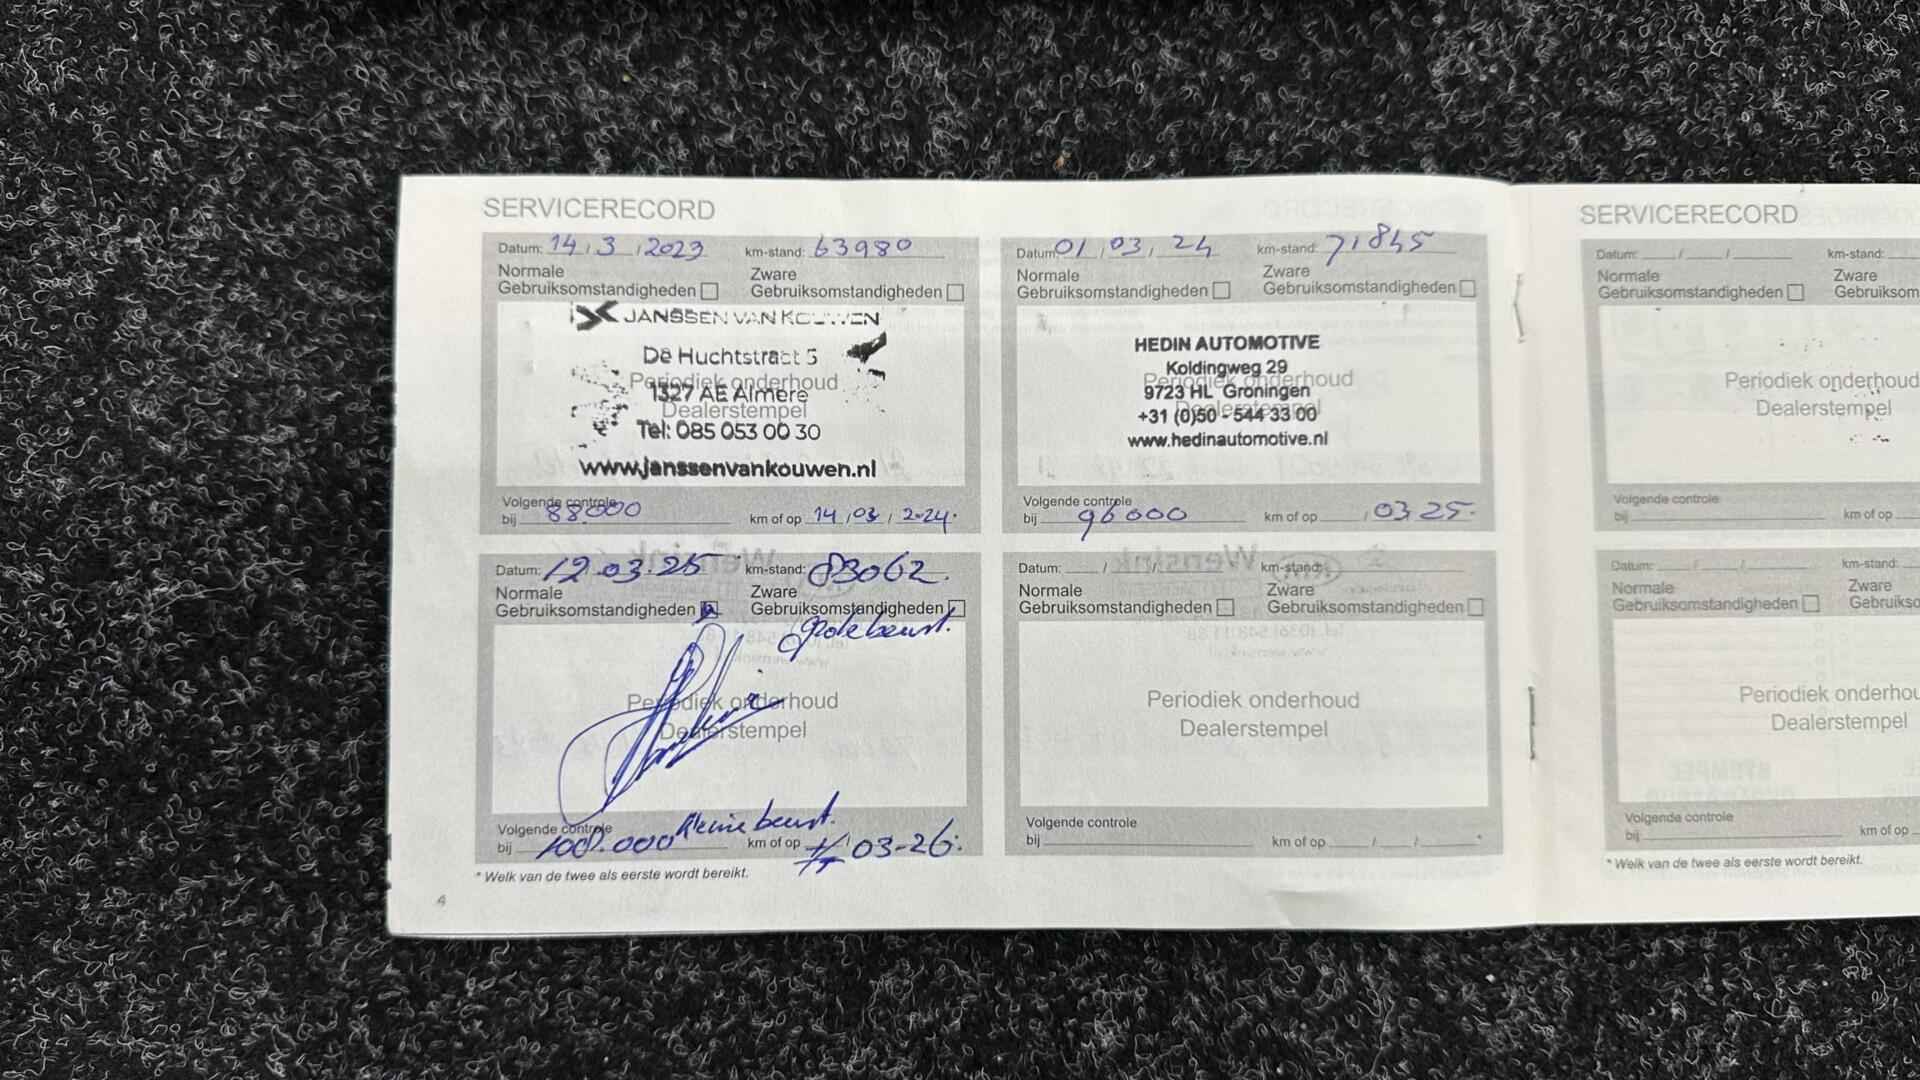 SERVICERECORD
Datum: 14 / 3 / 2023 km-stand: 63980
Normale Zware
Gebruiksomstandigheden Gebruiksomstandigheden
JANSSEN VAN KOUWEN
De Huchtstraat 5
Periodiek onderhoud
1327 AE Almere
Dealerstempel
Tel: 085 053 00 30
www.janssenvankouwen.nl
Volgende controle
bij 88.000 km of op 14 / 03 / 2024.
Datum: 01 / 03 / 24 km-stand: 71845
Normale Zware
Gebruiksomstandigheden Gebruiksomstandigheden
HEDIN AUTOMOTIVE
Koldingweg 29
Periodiek onderhoud
9723 HL Groningen
Dealerstempel
+31 (0)50 - 544 33 00
www.hedinautomotive.nl
Volgende controle
bij 96000 km of op / 03 25.
Datum: 12.03.25 km-stand: 83062.
Normale Zware
Gebruiksomstandigheden Gebruiksomstandigheden
Grote beurt.
Periodiek onderhoud
Dealerstempel
Volgende controle Kleine beurt.
bij 108.000 km of op 03-26.
Datum: / / km-stand:
Normale Zware
Gebruiksomstandigheden Gebruiksomstandigheden
Periodiek onderhoud
Dealerstempel
Volgende controle
bij km of op / / *
* Welk van de twee als eerste wordt bereikt.
4
SERVICERECORD
Datum: / / km-stand:
Normale Zware
Gebruiksomstandigheden Gebruiksom
Periodiek onderhoud
Dealerstempel
Volgende controle
bij km of op
Datum: / / km-stand:
Normale Zware
Gebruiksomstandigheden Gebruikso
Periodiek onderhou
Dealerstempel
Volgende controle
bij km of op
* Welk van de twee als eerste wordt bereikt.